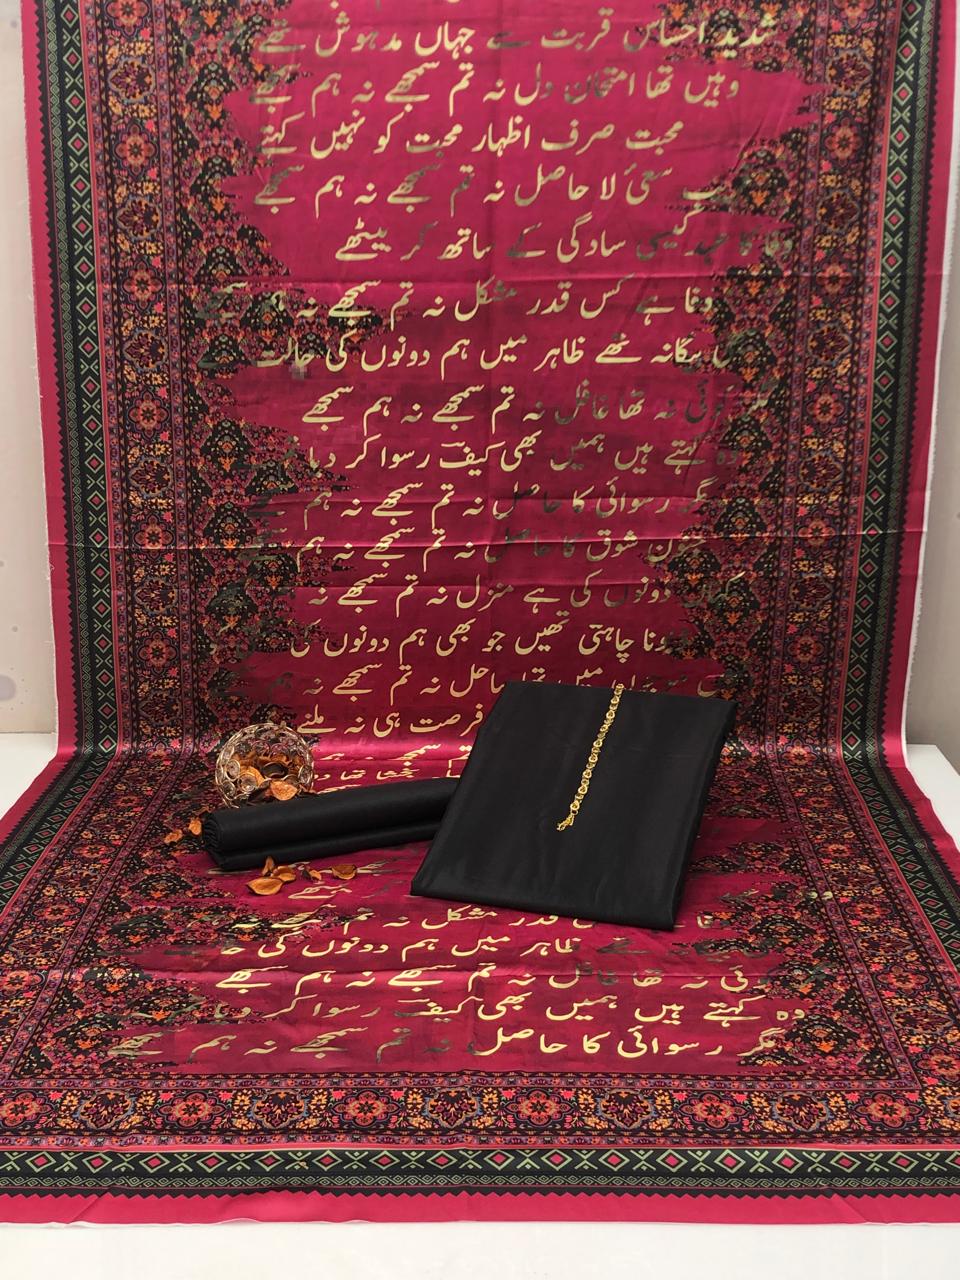 شدید احساس قربت سے جہاں مدہوش تھے
وہیں تھا امتحان دل نہ تم سمجھے نہ ہم سمجھے
محبت صرف اظہار محبت کو نہیں کہتے
سعئ لا حاصل نہ تم سمجھے نہ ہم سمجھے
وفا کا عہد کیسی سادگی کے ساتھ کر بیٹھے
وفا ہے کس قدر مشکل نہ تم سمجھے نہ ہم سمجھے
بیگانہ تھے ظاہر میں ہم دونوں کی حالت سے
مگر کوئی نہ تھا غافل نہ تم سمجھے نہ ہم سمجھے
وہ کہتے ہیں ہمیں بھی کیف رسوا کر دیا
مگر رسوائی کا حاصل نہ تم سمجھے نہ ہم سمجھے
جنون شوق کا حاصل نہ تم سمجھے نہ ہم سمجھے
کہاں دونوں کی ہے منزل نہ تم سمجھے نہ
چاہتی تھیں جو بھی ہم دونوں کی
میں تھا ساحل نہ تم سمجھے نہ ہم
فرصت ہی نہ ملنے
بخشا تھا
بیٹھے
قدر مشکل نہ تم سمجھے
ظاہر میں ہم دونوں کی
کوئی نہ تھا غافل نہ تم سمجھے نہ ہم سمجھے
وہ کہتے ہیں ہمیں بھی کیف رسوا کر دیا
مگر رسوائی کا حاصل نہ تم سمجھے نہ ہم سمجھے